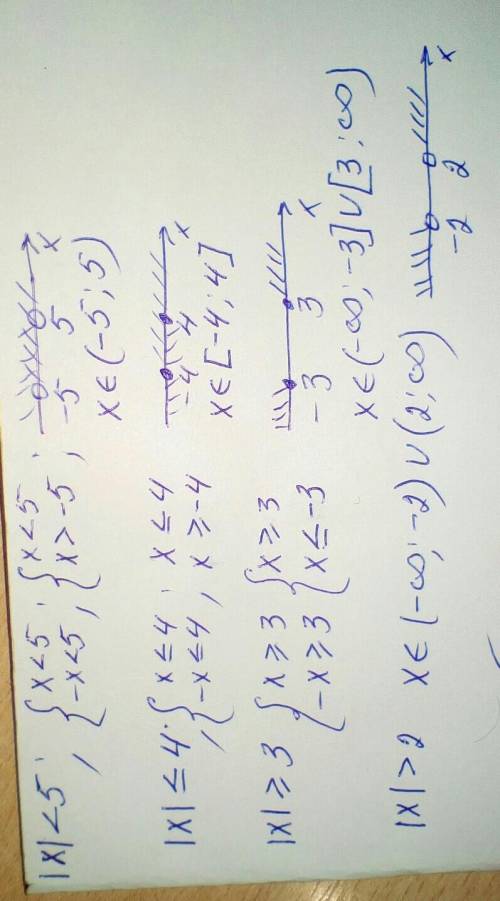 |x|<5; {x<5 ; {x<5 ;
{-x<5, {x>-5
-5 5 x
x∈(-5; 5)
|x|≤4; {x≤4 ; x≤4
{-x≤4, x≥-4
-4 4 x
x∈[-4; 4]
|x|≥3 {x≥3 {x≥3
{-x≥3 {x≤-3
-3 3 x
x∈(-∞; -3]∪[3; ∞)
|x|>2 x∈(-∞; -2)∪(2; ∞)
-2 2 x